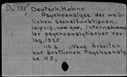 Deutsch, Helene
Psychoanalyse der weiblichen Sexualfunktionen.
Leipzig, usw., Internationaler psychoanalytischer Verlag, 1925.
110 s. (Neue Arbeiten zur ärztlichen Psychoanalyse.